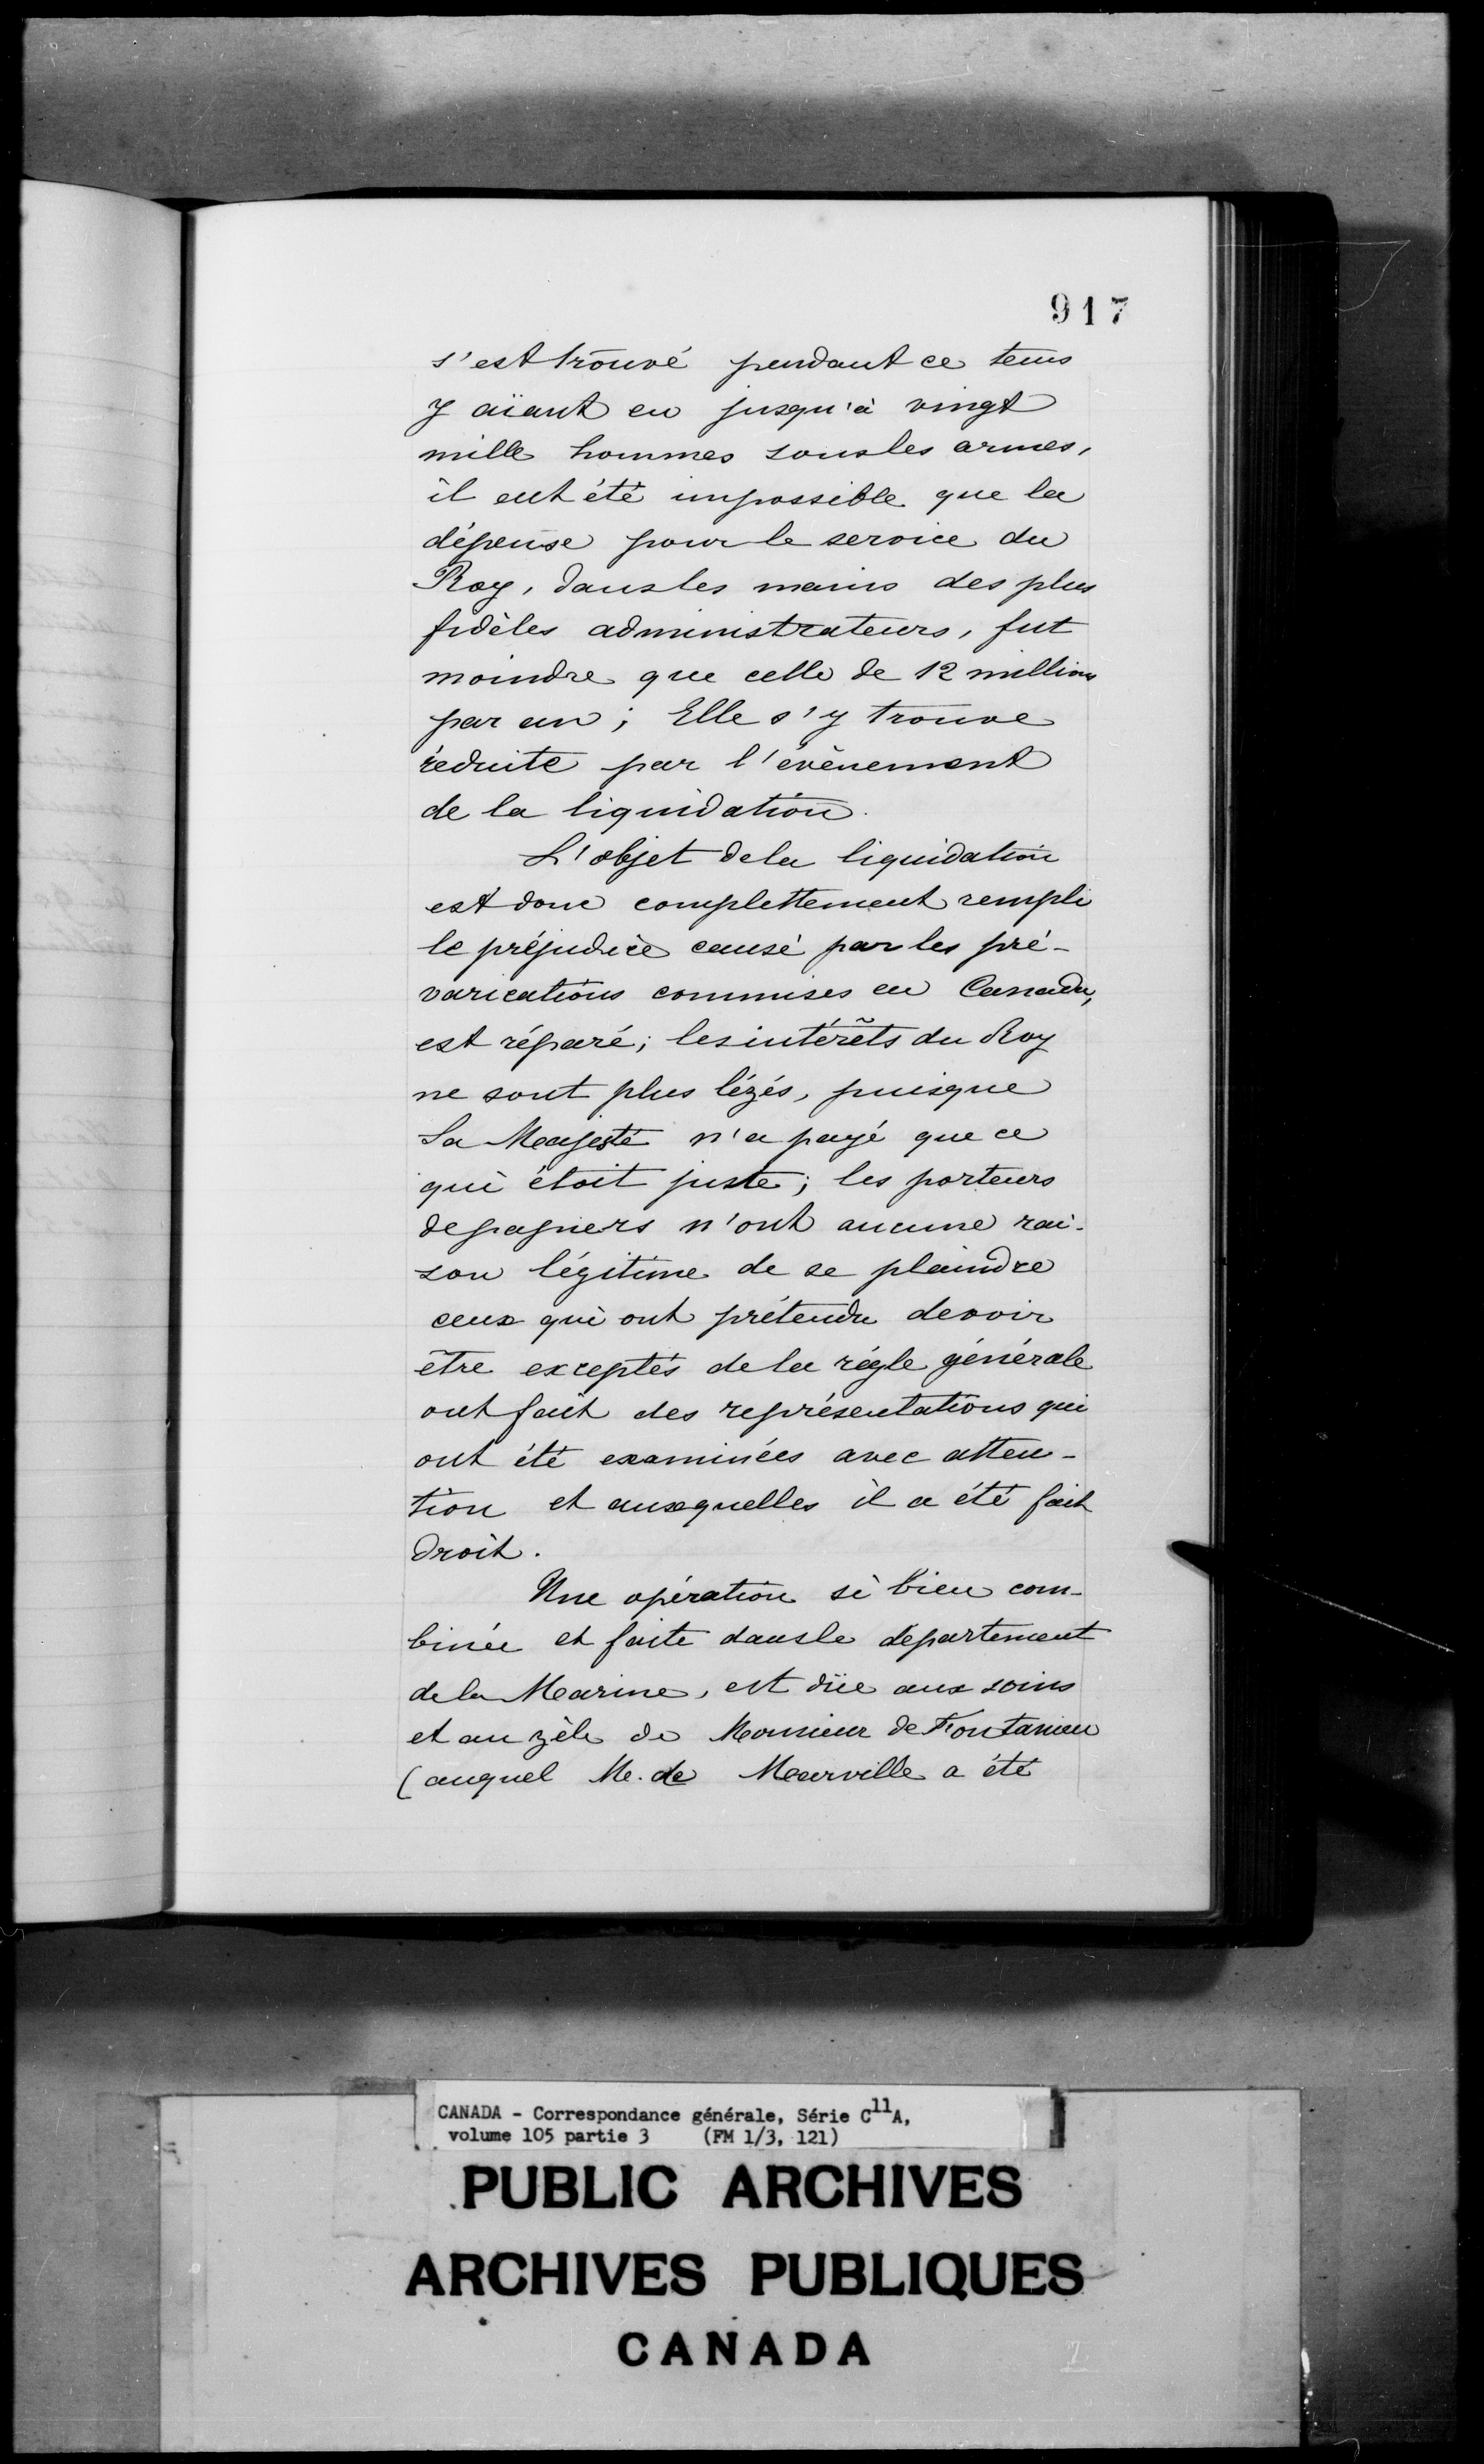 917
s'est trouvé pendant ce tems
y aïant eu jusqu'à vingt
mille hommes sous les armes,
il eut été impossible que la
dépense pour le service du
Roy, dans les mains des plus
fidèles administrateurs, fut
moindre que celle de 12 millions
par an ; Elle s'y trouve
réduite par l'évènement
de la liquidation.
L'objet de la liquidation
est donc complettement rempli
le préjudice causé par les pré-
varications commises en Canada,
est réparé ; les intérêts du Roy
ne sont plus lézés, puisque
Sa Majesté n'a payé que ce
qui étoit juste ; les porteurs
de papiers n'ont aucune rai-
son légitime de se plaindre
ceux qui ont prétendu devoir
être exceptés de la régle générale
ont fait des représentations qui
ont été examinées avec atten-
tion et auxquelles il a été fait
droit.
Une opération si bien com-
binée et faite dans le département
de la Marine, est düe aux soins
et au zèle de Monsieur de Fontanieu
(auquel M. de Meurville a été
CANADA - Correspondance générale, Série C11A,
volume 105 partie 3 (FM 1/3, 121)
PUBLIC ARCHIVES
ARCHIVES PUBLIQUES
CANADA